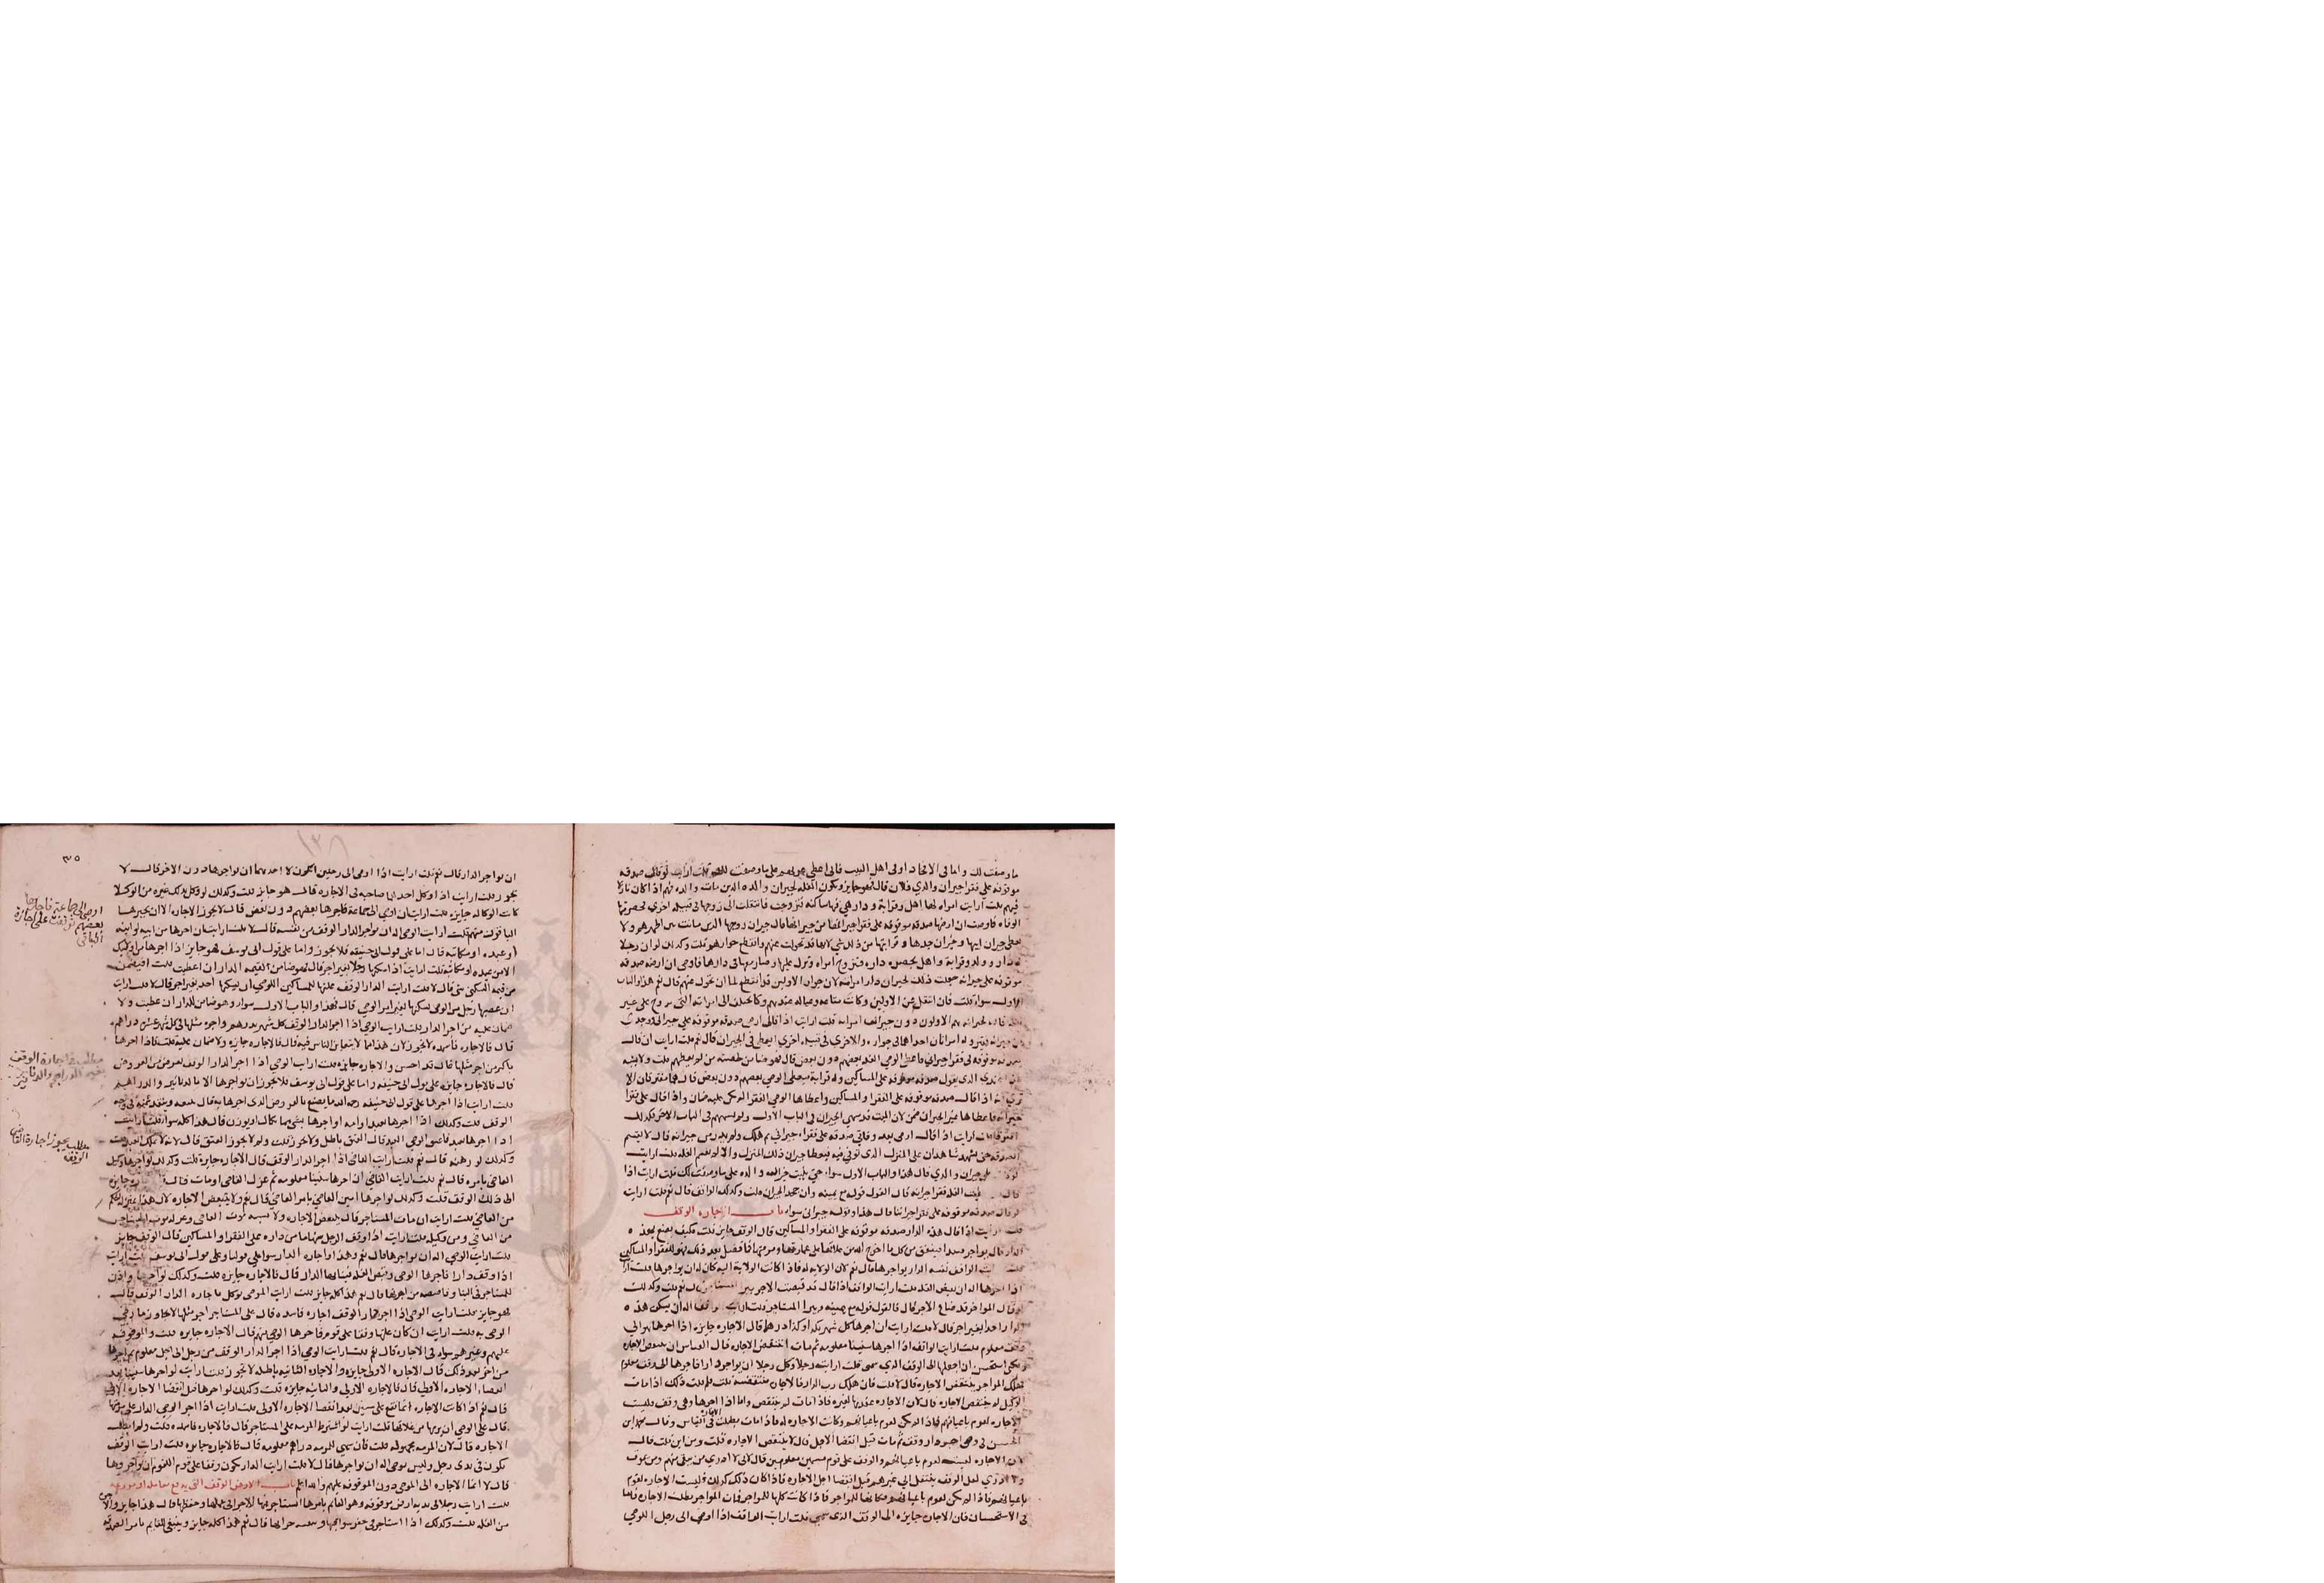 ما وصفت لك واما في الاتحاد اولى اهل البيت فاني اعطي على ما وصفت لك قلت ارايت لو قال صدقه
موقوفه على فقرا جيران والدي فلان قال فهو جايز وتكون الغله لجيران والده الذين مات والده فيهم اذا كان نازلا
فيهم قلت ارايت امراه لها اهل وقرابة ودار هي فيها ساكنه فتزوجت فانتقلت الى زوجها في قبيله اخرى فحضرتها
الوفاه فاوصت ان ارضها صدقه موقوفه على فقرا جيرانها من جيرانها قال جيران زوجها الذين ماتت بين اظهرهم ولا
يعطى جيران ابيها وجيران جدها وقرابتها من ذلك شي لانها قد تحولت عنهم وانقطع جوارهم قلت وكذلك لو ان رجلا
له دار وولد وقرابة واهل بحضره داره فتزوج امراه ونزل عليها وصار معها في دارها فاوصى ان ارضه صدقه
موقوفه على جيرانه جعلت ذلك لجيران دار امراته لان جوار الاولين قد انقطع لما ان تحول عنهم قال نعم هذا والباب
الاول سوا قلت فان انتقل عن الاولين وكانت متاعه وعياله عندهم وكان يختلف الى امراته التي تزوج
قال لجيرانه هم الاولون دون جيران امراته قلت ارايت اذا قال ارضي صدقه موقوفه على جيراني
صدقه موقوفه في فقرا جيراني فاعطى الوصي الغله بعضهم دون بعض قال هو ضامن حصته من لم يعطهم قلت ولا يشبه
هذا الذي يقول صدقه موقوفه على المساكين وله قرابة فيعطي الوصي بعضهم دون بعض قال هما مفترقان الا
ترى انه اذا قال صدقه موقوفه على الفقرا والمساكين واعطاها الوصي الفقرا لم يكن عليه ضمان واذا قال على فقرا
جيرانه فاعطاها غير الجيران ضمن لان الميت قد سمى الجيران في الباب الاول ولم يسمهم في الباب الاخر وكذلك
افترقا قلت ارايت اذا قال ارضي بعد وفاتي صدقه على فقراء جيراني ثم هلك ولم يدر من جيرانه قال لا تقسم
الصدقه حتى يشهد شاهدان على المنزل الذي توفي فيه فيعطا جيران ذلك المنزل والا لم تقسم الغله قلت ارايت
جيران والدي قال هذا والباب الاول سواء حتى يثبت جيران والده على ما وصفت لك قلت ارايت اذا
الغله فقرا جيرانه قال القول قوله مع يمينه وان جحد الجيران قلت وكذلك الواقف قال نعم قلت ارايت
لو قال صدقه موقوفه على فقرا جيراننا قال هذا وقوله جيراني سواء باب اجاره الوقف
قلت ارايت اذا قال هذه الدار صدقه موقوفه على الفقرا والمساكين قال الوقف جايز قلت فكيف يصنع بهذه
الدار قال يواجر فيبدا فينفق من كل ما اخرج الله من غلاتها على عمارتها ومرمتها فما فضل بعد ذلك فهو للفقرا والمساكين
قلت ارايت الواقف نفسه الدار يواجرها قال نعم لان الولايه له فاذا كانت الولاية اليه كان له ان يواجرها قلت ارايت
اذا اجرها اله ان يقبض الغله قلت ارايت الواقف اذا قال قد قبضت الاجر نعم قلت وكذلك
لو قال المواجر قد ضاع الاجر قال فالقول قوله مع يمينه ويبرا المستاجر قلت ارايت الواقف اله ان يسكن هذه
الدار احدا بغير اجر قال لا قلت ارايت ان اجرها كل شهر بكذا وكذا درهما قال الاجاره جايزة اذا اجرها
وقت معلوم قلت ارايت الواقف اذا اجرها سنينا معلومه ثم مات اتنتقض الاجاره قال القياس ان تنتقض الاجاره
ولكني استحسن ان اجعلها الى الوقف الذي سمى قلت ارايت رجلا وكل رجلا ان يواجر دارا فاجرها الى وقت معلوم
فهلك المواجر اتنتقض الاجاره قال لا قلت فان هلك رب الدار قال الاجاره منتقضه قلت فلم قلت ذلك اذا مات
الوكيل لم تنتقض الاجاره قال لان الاجاره عقد بها لغيره فاذا مات لم تنتقض واما اذا اجرها وهي وقف فليست
الاجاره لقوم باعيانهم فاذا لم تكن لقوم باعيانهم وكانت الاجاره له فاذا مات بطلت الاجاره في القياس وقال محمد ابن
الحسن في وصي اجر دار وقف ثم مات قبل انقضا الاجل قال لا تنتقض الاجاره قلت ومن اين قلت قال
لان الاجاره ليست لقوم باعيانهم والوقف على قوم مسمين معلومين قال لاني لا ادري من بقي منهم ومن يموت
ولا ادري لعل الوقف ينتقل الى غيرهم قبل انقضا اجل الاجاره فاذا كان ذلك كذلك فليست الاجاره لقوم
باعيانهم فاذا لم تكن لقوم باعيانهم فكانها للمواجر فاذا كانت كلها للمواجر فمات المواجر بطلت الاجاره فاما
في الاستحسان فان الاجاره جايزه الى الوقت الذي سمى قلت ارايت الواقف اذا اوصى الى رجل اللوصي
٣٥
١٣٨
ان يواجر الدار قال نعم قلت ارايت اذا اوصى الى رجلين ايكون لاحدهما ان يواجرها دون الاخر قال لا
يجوز قلت ارايت اذا وكل احدهما صاحبه في الاجاره قال هو جايز قلت وكذلك لو وكل بذلك غيره من الوكلا
كانت الوكاله جايزه قلت ارايت ان اوصى الى جماعة فاجرها بعضهم دون بعض قال لا تجوز الاجاره الا ان يجيزها
الباقون منهم قلت ارايت الوصي اله ان يواجر الدار الوقف من نفسه قال لا قلت ارايت ان اجرها من ابيه او ابنه
او عبده او مكاتبه قال اما على قول ابي حنيفه فلا يجوز واما على قول ابي يوسف فهو جايز اذا اجرها من
الا من عبده او مكاتبه قلت ارايت اذا اسكنها رجلا بغير اجر قال هو ضامن لقيمه الدار ان اعطبت قلت افيضمن
من قيمه السكنى شي قال لا قلت ارايت الدار الوقف غلتها للمساكين اللوصي ان يسكنها احد بغير اجر قال لا قلت ارايت
ان غصبها رجل من الوصي فسكنها بغير امر الوصي قال فهذا والباب الاول سوا وهو ضامن للدار ان عطبت ولا
ضمان عليه من اجر الدار قلت ارايت الوصي اذا اجر الدار الوقف كل شهر بدرهم واجره مثلها في كل شهر عشره دراهم
قال فالاجاره فاسده لا تجوز لان هذا مما لا يتغابن الناس فيه قال فالاجاره جايزه ولا ضمان عليه قلت فاذا اجرها
باكثر من اجر مثلها قال قد احسن والاجاره جايزه قلت ارايت الوصي اذا اجر الدار الوقف بعرض من العروض
قال فالاجاره جايزه على قول ابي حنيفه واما على قول ابي يوسف فلا يجوز ان يواجرها الا بالدنانير والدراهم
قلت ارايت اذا اجرها على قول ابي حنيفه رحمه الله ما يصنع بالعروض الذي اجرها به قال يبيعه وينفذ ثمنه في وجه
الوقف قلت وكذلك اذا اجرها بعبد او امه او اجرها بشي مما يكال او يوزن قال هذا كله سوا قلت ارايت
اذا اجرها بعبد فاعتق الوصي العبد قال العتق باطل ولا يجوز قلت ولم لا يجوز العتق قال لانه لا يملك العبد قلت
وكذلك لو رهنه قال نعم قلت ارايت القاضي اذا اجر الدار الوقف قال الاجاره جايزه قلت وكذلك لو اجرها وكيل
القاضي بامره قال نعم قلت ارايت القاضي ان اجرها سنينا معلومه ثم عزل القاضي او مات قال جايزه
الى ذلك الوقف قلت وكذلك لو اجرها امين القاضي بامر القاضي قال نعم ولا تنتقض الاجاره لان هذا بمنزله الحكم
من القاضي قلت ارايت ان مات المستاجر قال تنتقض الاجاره ولا يشبه موت القاضي وعزله موت المستاجر
من القاضي ومن وكيله قلت ارايت اذا وقف الرجل سهما من داره على الفقرا والمساكين قال الوقف جايز
قلت ارايت الوصي اله ان يواجرها قال نعم وهذا واجاره الدار سوا على قولنا وعلى قول ابي يوسف قلت ارايت
اذا وقف دارا فاجرها الوصي وقبض الغله فبنا بها الدار قال فالاجاره جايزه قلت وكذلك لو اجرها واذن
للمستاجر في البنا وقاصصه من اجرتها قال نعم هذا كله جايز قلت ارايت الوصي يوكل باجاره الدار الوقف قال
هو جايز قلت ارايت الوصي اذا اجر الدار الوقف اجاره فاسده قال على المستاجر اجر مثلها لا يجاوز ما رضي
الوصي به قلت ارايت ان كان عليها وقفا على قوم فاجرها الوصي منهم قال الاجاره جايزه قلت والموقوف
عليهم وغيرهم سوا في الاجاره قال نعم قلت ارايت الوصي اذا اجر الدار الوقف من رجل الى اجل معلوم ثم اجرها
من اخر بعد ذلك قال الاجاره الاولى جايزه والاجاره الثانيه باطله لا تجوز قلت ارايت لو اجرها سنينا بعد
انقضاء الاجاره الاولى قال فالاجاره الاولى والثانيه جايزه قلت وكذلك لو اجرها قبل انقضا الاجاره الاولى
قال نعم اذا كانت الاجاره انما تقع على سنين بعد انقضا الاجاره الاولى قلت ارايت اذا اجر الوصي الدار على مرمتها
قال على الوصي ان يرمها من غلاتها قلت ارايت لو اشترط المرمه على المستاجر قال فالاجاره فاسده قلت ولم ابطلت
الاجاره قال لان المرمه مجهوله قلت فان سمى للمرمه دراهم معلومه قال فالاجاره جايزه قلت ارايت الوقف
يكون في يدي رجل وليس بوصي اله ان يواجرها قال لا قلت ارايت الدار تكون وقفا على قوم اللقوم ان يواجروها
قال لا انما الاجاره الى الوصي دون الموقوف عليهم والله اعلم باب الارض الوقف التي يدفع معاملة او مزارعه
قلت ارايت رجلا في يديه ارض موقوفه وهو القايم بامرها استاجر فيها الاجرا في عملها وحفظها قال هذا جايز والاجر
من الغله قلت وكذلك اذا استاجر في حفر سواقيها قال نعم هذا كله جايز وينبغي للقايم بامر الصدقه
اوصى الى جماعة فاجارها
بعضهم توقفت على اجازة
الباقي
مطلب في اجارة الوقف
بغير الدراهم والدنانير
مطلب يجوز اجارة القاضي
الوقف